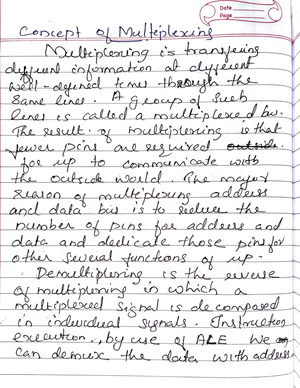 Date
Page
Concept of Multiplexing
Multiplexing is transfering
different information at different
well-defined times through the
same lines. A group of such
lines is called a multiplexed bus.
The result of multiplexing is that
fewer pins are required outside.
for up to communicate with
the outside world. The major
reason of multiplexing address
and data bus is to reduce the
number of pins for address and
data and dedicate those pins for
other several functions of up.
Demultiplexing is the reverse
of multiplexing in which a
multiplexed signal is decomposed
in individual signals. Instruction
execution, by use of ALE we
can demux the data with address